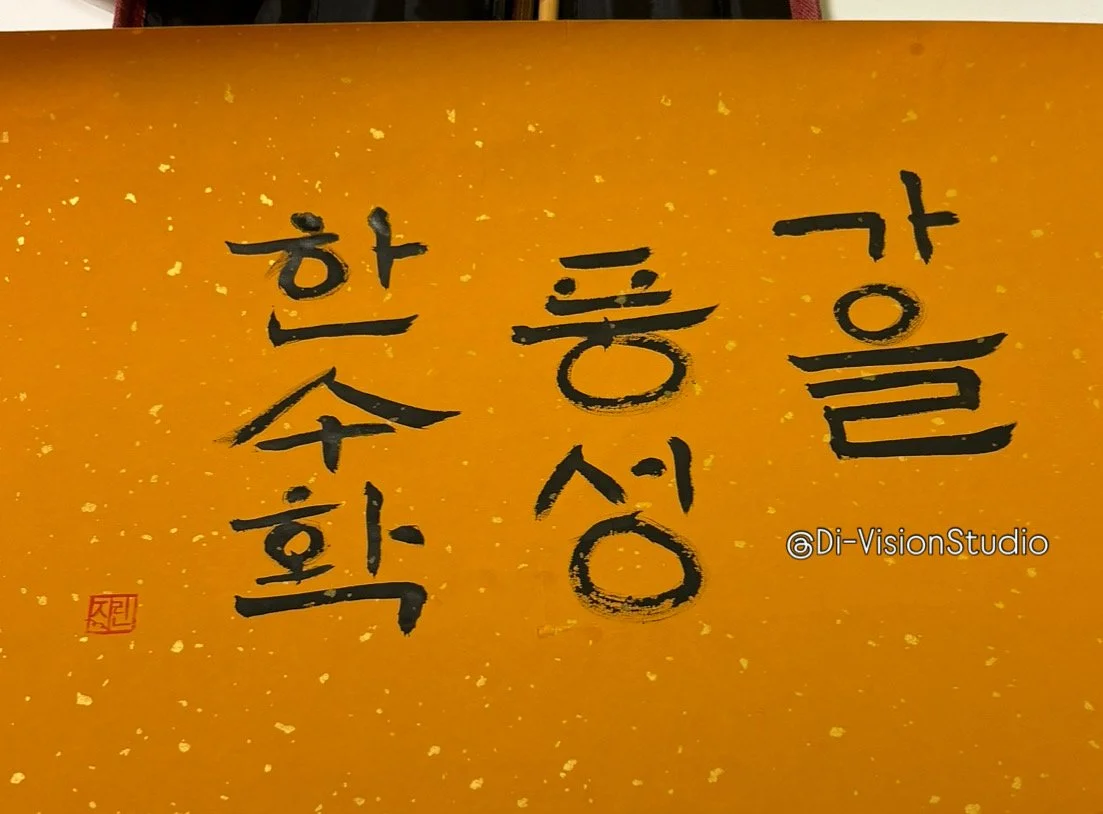 가을
풍성
한수확
@Di-VisionStudio